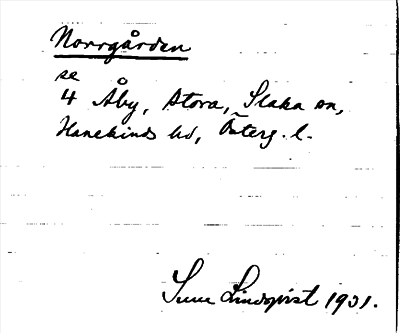 Norrgården
se
4 Åby, Stora, Slaka sn,
Hanekinds hd, Österg. l.
Sune Lindqvist 1931.